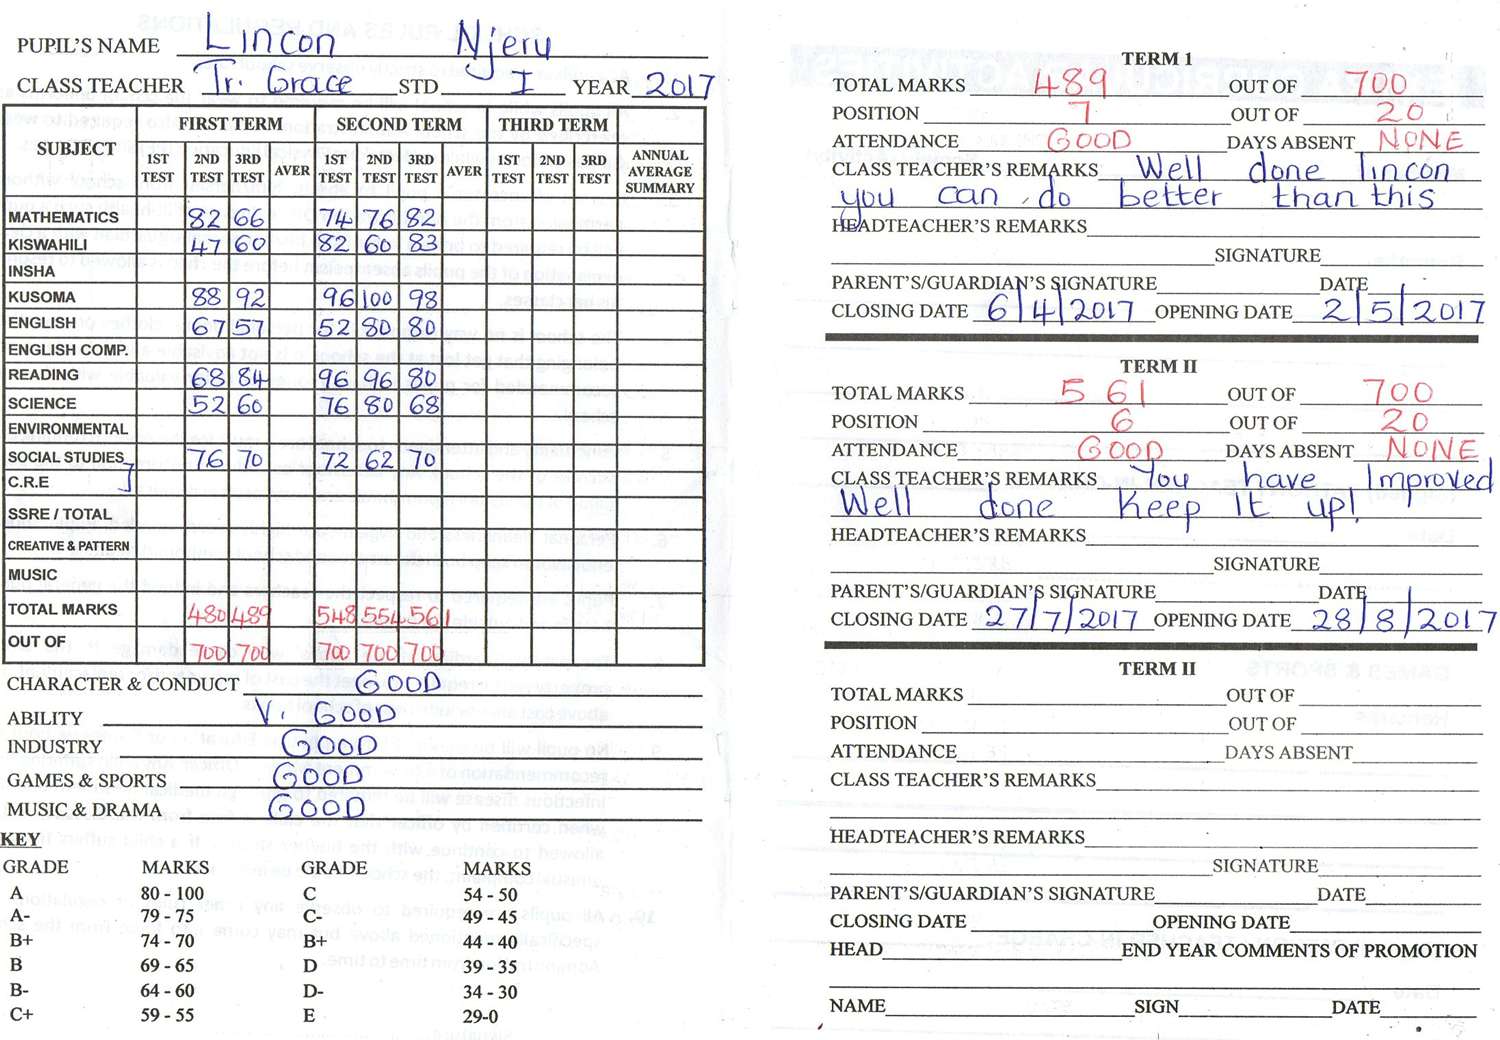 PUPIL'S NAME Lincon Njeru
CLASS TEACHER Tr. Grace STD I YEAR 2017
SUBJECT FIRST TERM SECOND TERM THIRD TERM
1ST TEST 2ND TEST 3RD TEST AVER 1ST TEST 2ND TEST 3RD TEST AVER 1ST TEST 2ND TEST 3RD TEST ANNUAL AVERAGE SUMMARY
MATHEMATICS 82 66 74 76 82
KISWAHILI 47 60 82 60 83
INSHA
KUSOMA 88 92 96 100 98
ENGLISH 67 57 52 80 80
ENGLISH COMP.
READING 68 84 96 96 80
SCIENCE 52 60 76 80 68
ENVIRONMENTAL
SOCIAL STUDIES 76 70 72 62 70
C.R.E
SSRE / TOTAL
CREATIVE & PATTERN
MUSIC
TOTAL MARKS 480 489 548 554 561
OUT OF 700 700 700 700 700
CHARACTER & CONDUCT GOOD
ABILITY V. GOOD
INDUSTRY GOOD
GAMES & SPORTS GOOD
MUSIC & DRAMA GOOD
KEY
GRADE MARKS GRADE MARKS
A 80 - 100 C 54 - 50
A- 79 - 75 C- 49 - 45
B+ 74 - 70 B+ 44 - 40
B 69 - 65 D 39 - 35
B- 64 - 60 D- 34 - 30
C+ 59 - 55 E 29-0
TERM 1
TOTAL MARKS 489 OUT OF 700
POSITION 7 OUT OF 20
ATTENDANCE GOOD DAYS ABSENT NONE
CLASS TEACHER'S REMARKS Well done lincon
you can do better than this
HEADTEACHER'S REMARKS
SIGNATURE
PARENT'S/GUARDIAN'S SIGNATURE DATE
CLOSING DATE 6/4/2017 OPENING DATE 2/5/2017
TERM II
TOTAL MARKS 561 OUT OF 700
POSITION 6 OUT OF 20
ATTENDANCE GOOD DAYS ABSENT NONE
CLASS TEACHER'S REMARKS You have Improved
Well done keep it up!
HEADTEACHER'S REMARKS
SIGNATURE
PARENT'S/GUARDIAN'S SIGNATURE DATE
CLOSING DATE 27/7/2017 OPENING DATE 28/8/2017
TERM II
TOTAL MARKS OUT OF
POSITION OUT OF
ATTENDANCE DAYS ABSENT
CLASS TEACHER'S REMARKS
HEADTEACHER'S REMARKS
SIGNATURE
PARENT'S/GUARDIAN'S SIGNATURE DATE
CLOSING DATE OPENING DATE
HEAD END YEAR COMMENTS OF PROMOTION
NAME SIGN DATE